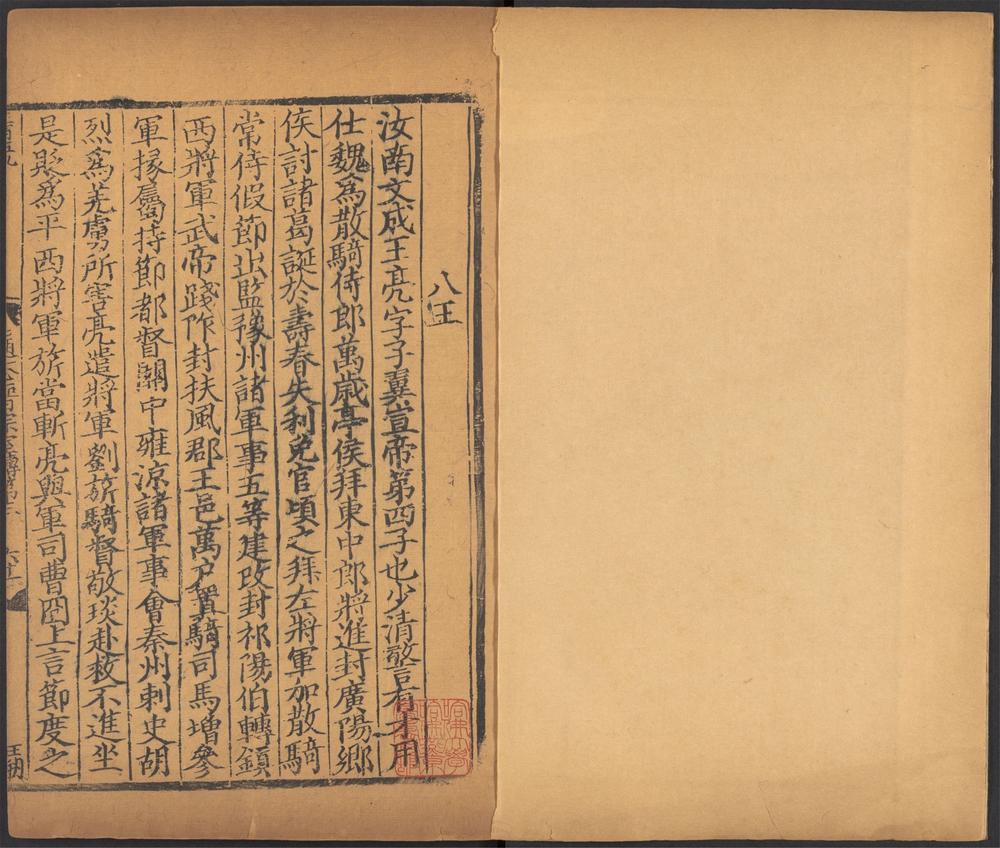 八王
汝南文成王亮字子翼宣帝第四子也少清警有才用
仕魏為散騎侍郎萬歲亭侯拜東中郎將進封廣陽鄉
侯討諸葛誕於壽春失利免官頃之拜左將軍加散騎
常侍假節出監豫州諸軍事五等建改封祁陽伯轉鎮
西將軍武帝踐阼封扶風郡王邑萬户置騎司馬增參
軍掾屬持節都督關中雍涼諸軍事會秦州刺史胡
烈為羌虜所害亮遣將軍劉旂騎督敬琰赴救不進坐
是貶為平西將軍旂當斬亮與軍司曹冏上言節度之